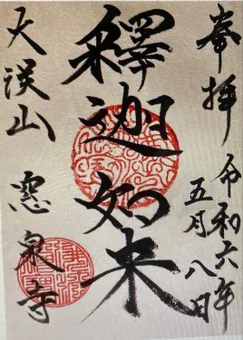 奉拝
令和六年
五月八日
釋迦如来
天渓山
窓泉寺